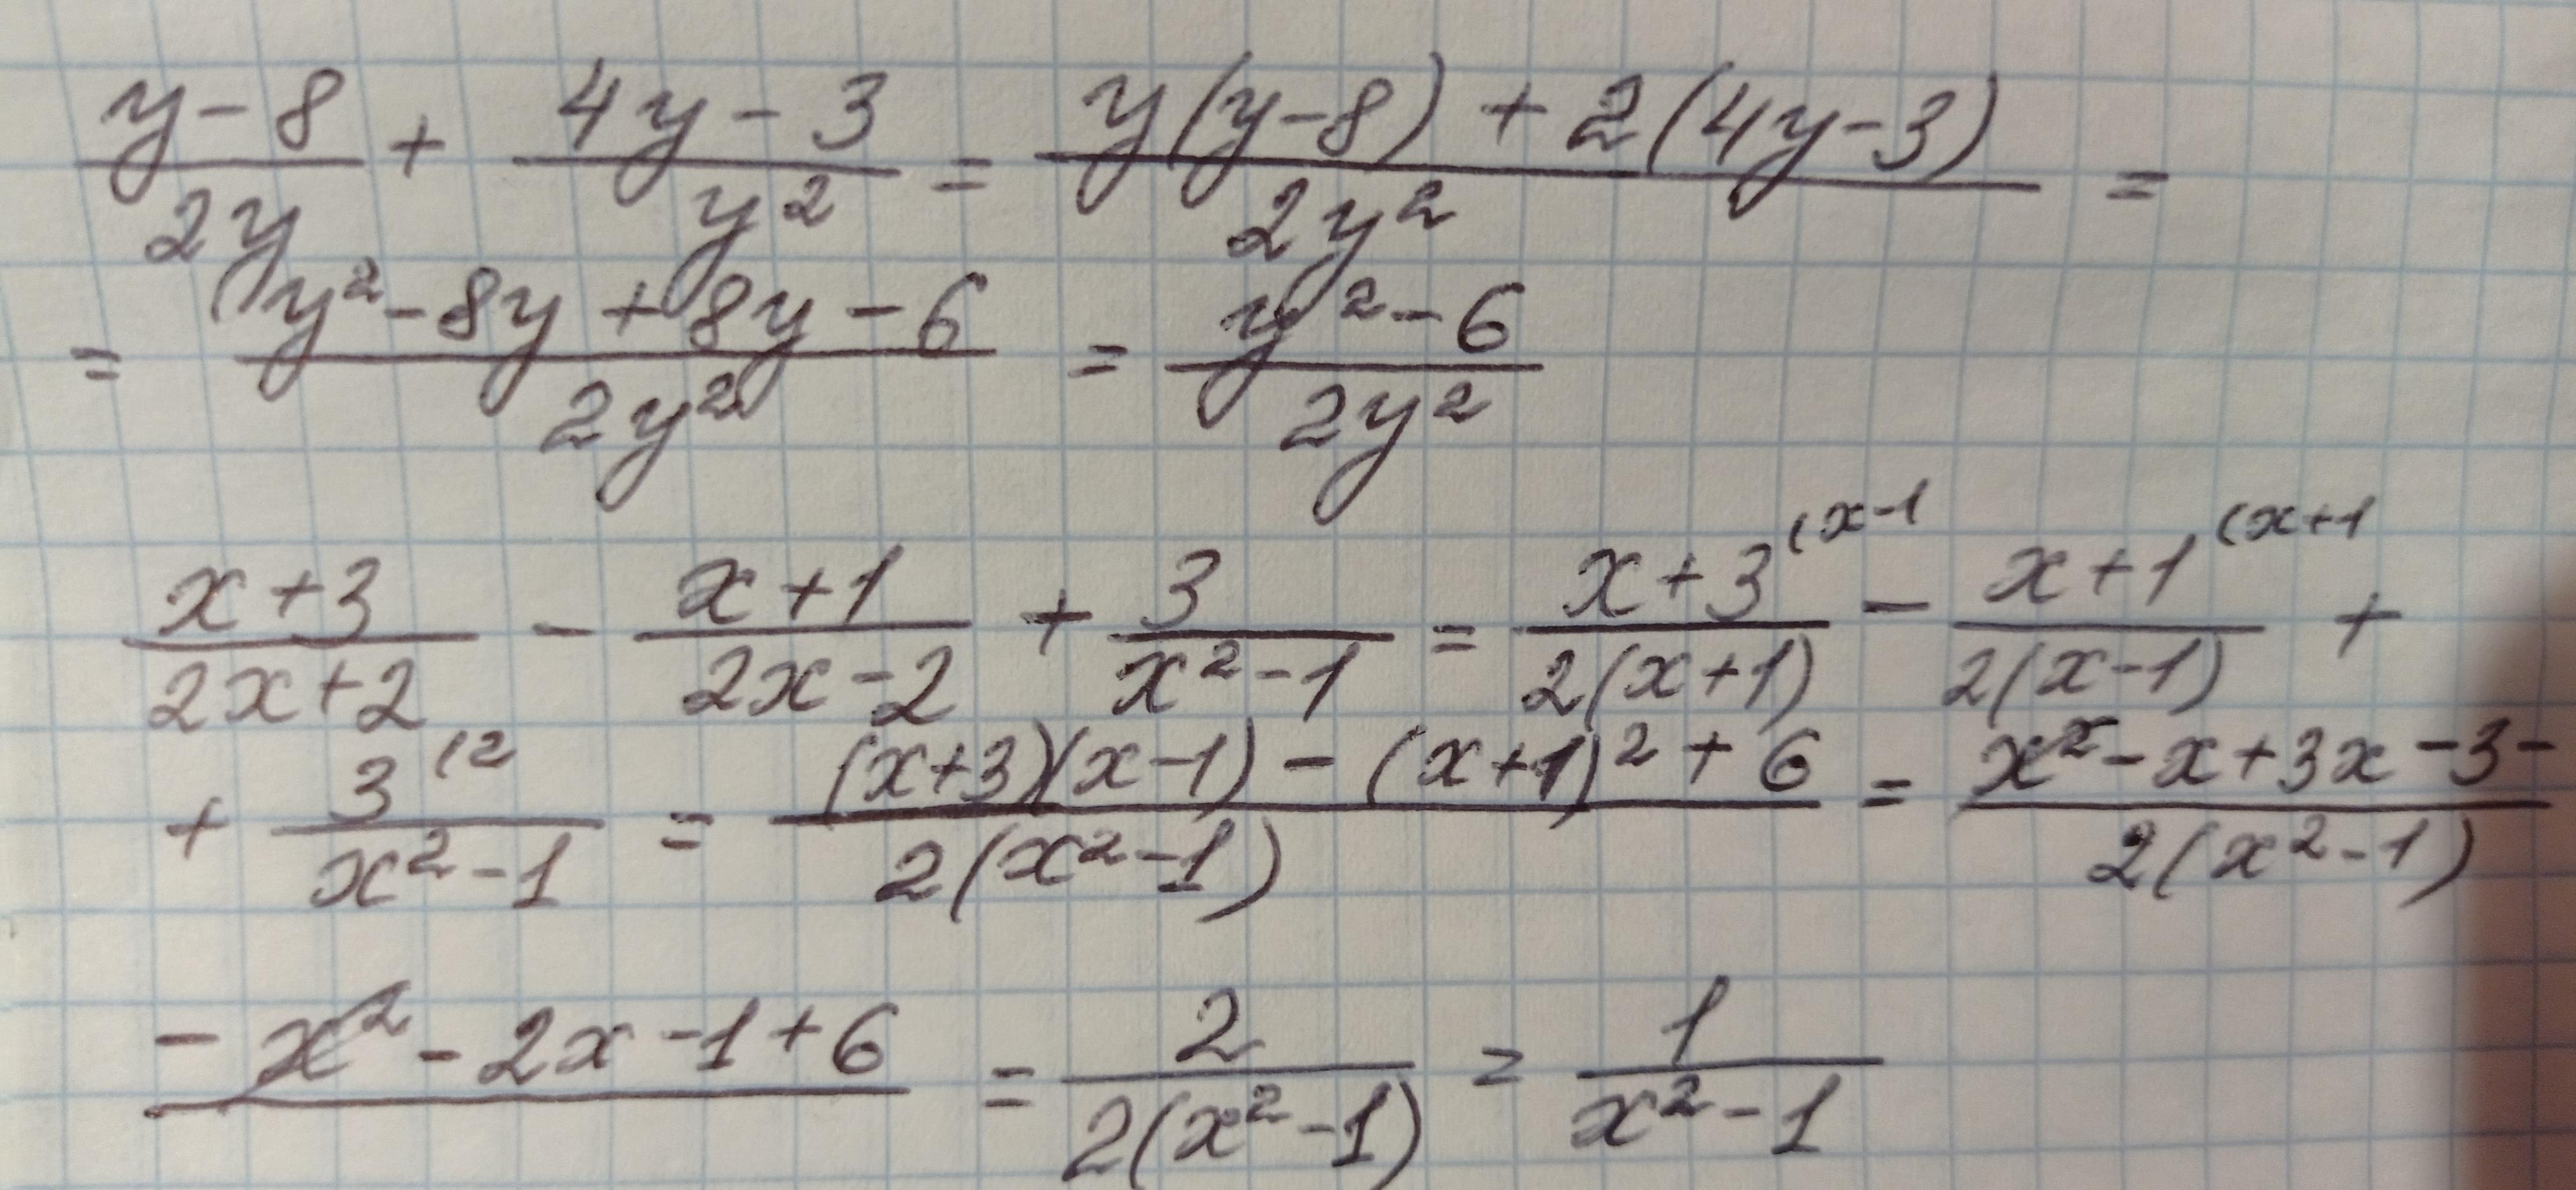 (y-8)/(2y) + (4y-3)/(y²) = (y(y-8)+2(4y-3))/(2y²) =
= (y²-8y+8y-6)/(2y²) = (y²-6)/(2y²)
(x+3)/(2x+2) - (x+1)/(2x-2) + 3/(x²-1) = (x+3 ⁽ˣ⁻¹)/(2(x+1)) - (x+1 ⁽ˣ⁺¹)/(2(x-1)) +
+ (3 ⁽²)/(x²-1) = ((x+3)(x-1)-(x+1)²+6)/(2(x²-1)) = (x²-x+3x-3-)/(2(x²-1))
-x²-2x-1+6 = 2/(2(x²-1)) = 1/(x²-1)